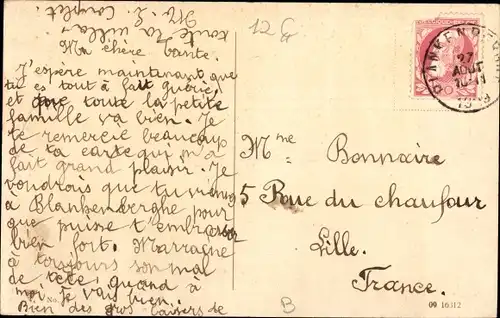 12 G
BLANKENBERGHE
27
AOUT
10-11
Ma chère tante.
J'espère maintenant que
tu es tout à fait guérie,
et que toute la petite
famille va bien. Je
te remercie beaucoup
de ta carte qui m'a
fait grand plaisir. Je
voudrois que tu viennes
à Blankenberghe pour
que puisse t'embrasser
bien fort. Marraine
à toujours son mal
de tête, quand à
moi je vais bien.
Bien des gros baisers de
toute la villa
M. L. Complet.
Mme Bonnaire
5 Rue du chaufour
Lille.
France.
No.
B
09 10312